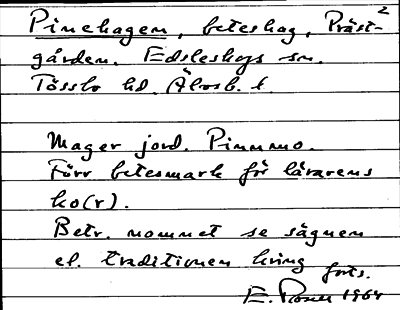 2
Pinehagen, beteshag, Präst-
gården. Edsleskogs sn.
Tössbo hd. Älvsb. l.
Mager jord. Pinnmo.
Förr betesmark för lärarens
ko(r).
Betr. namnet se sägnen
el. traditionen kring
forts.
E. 1964